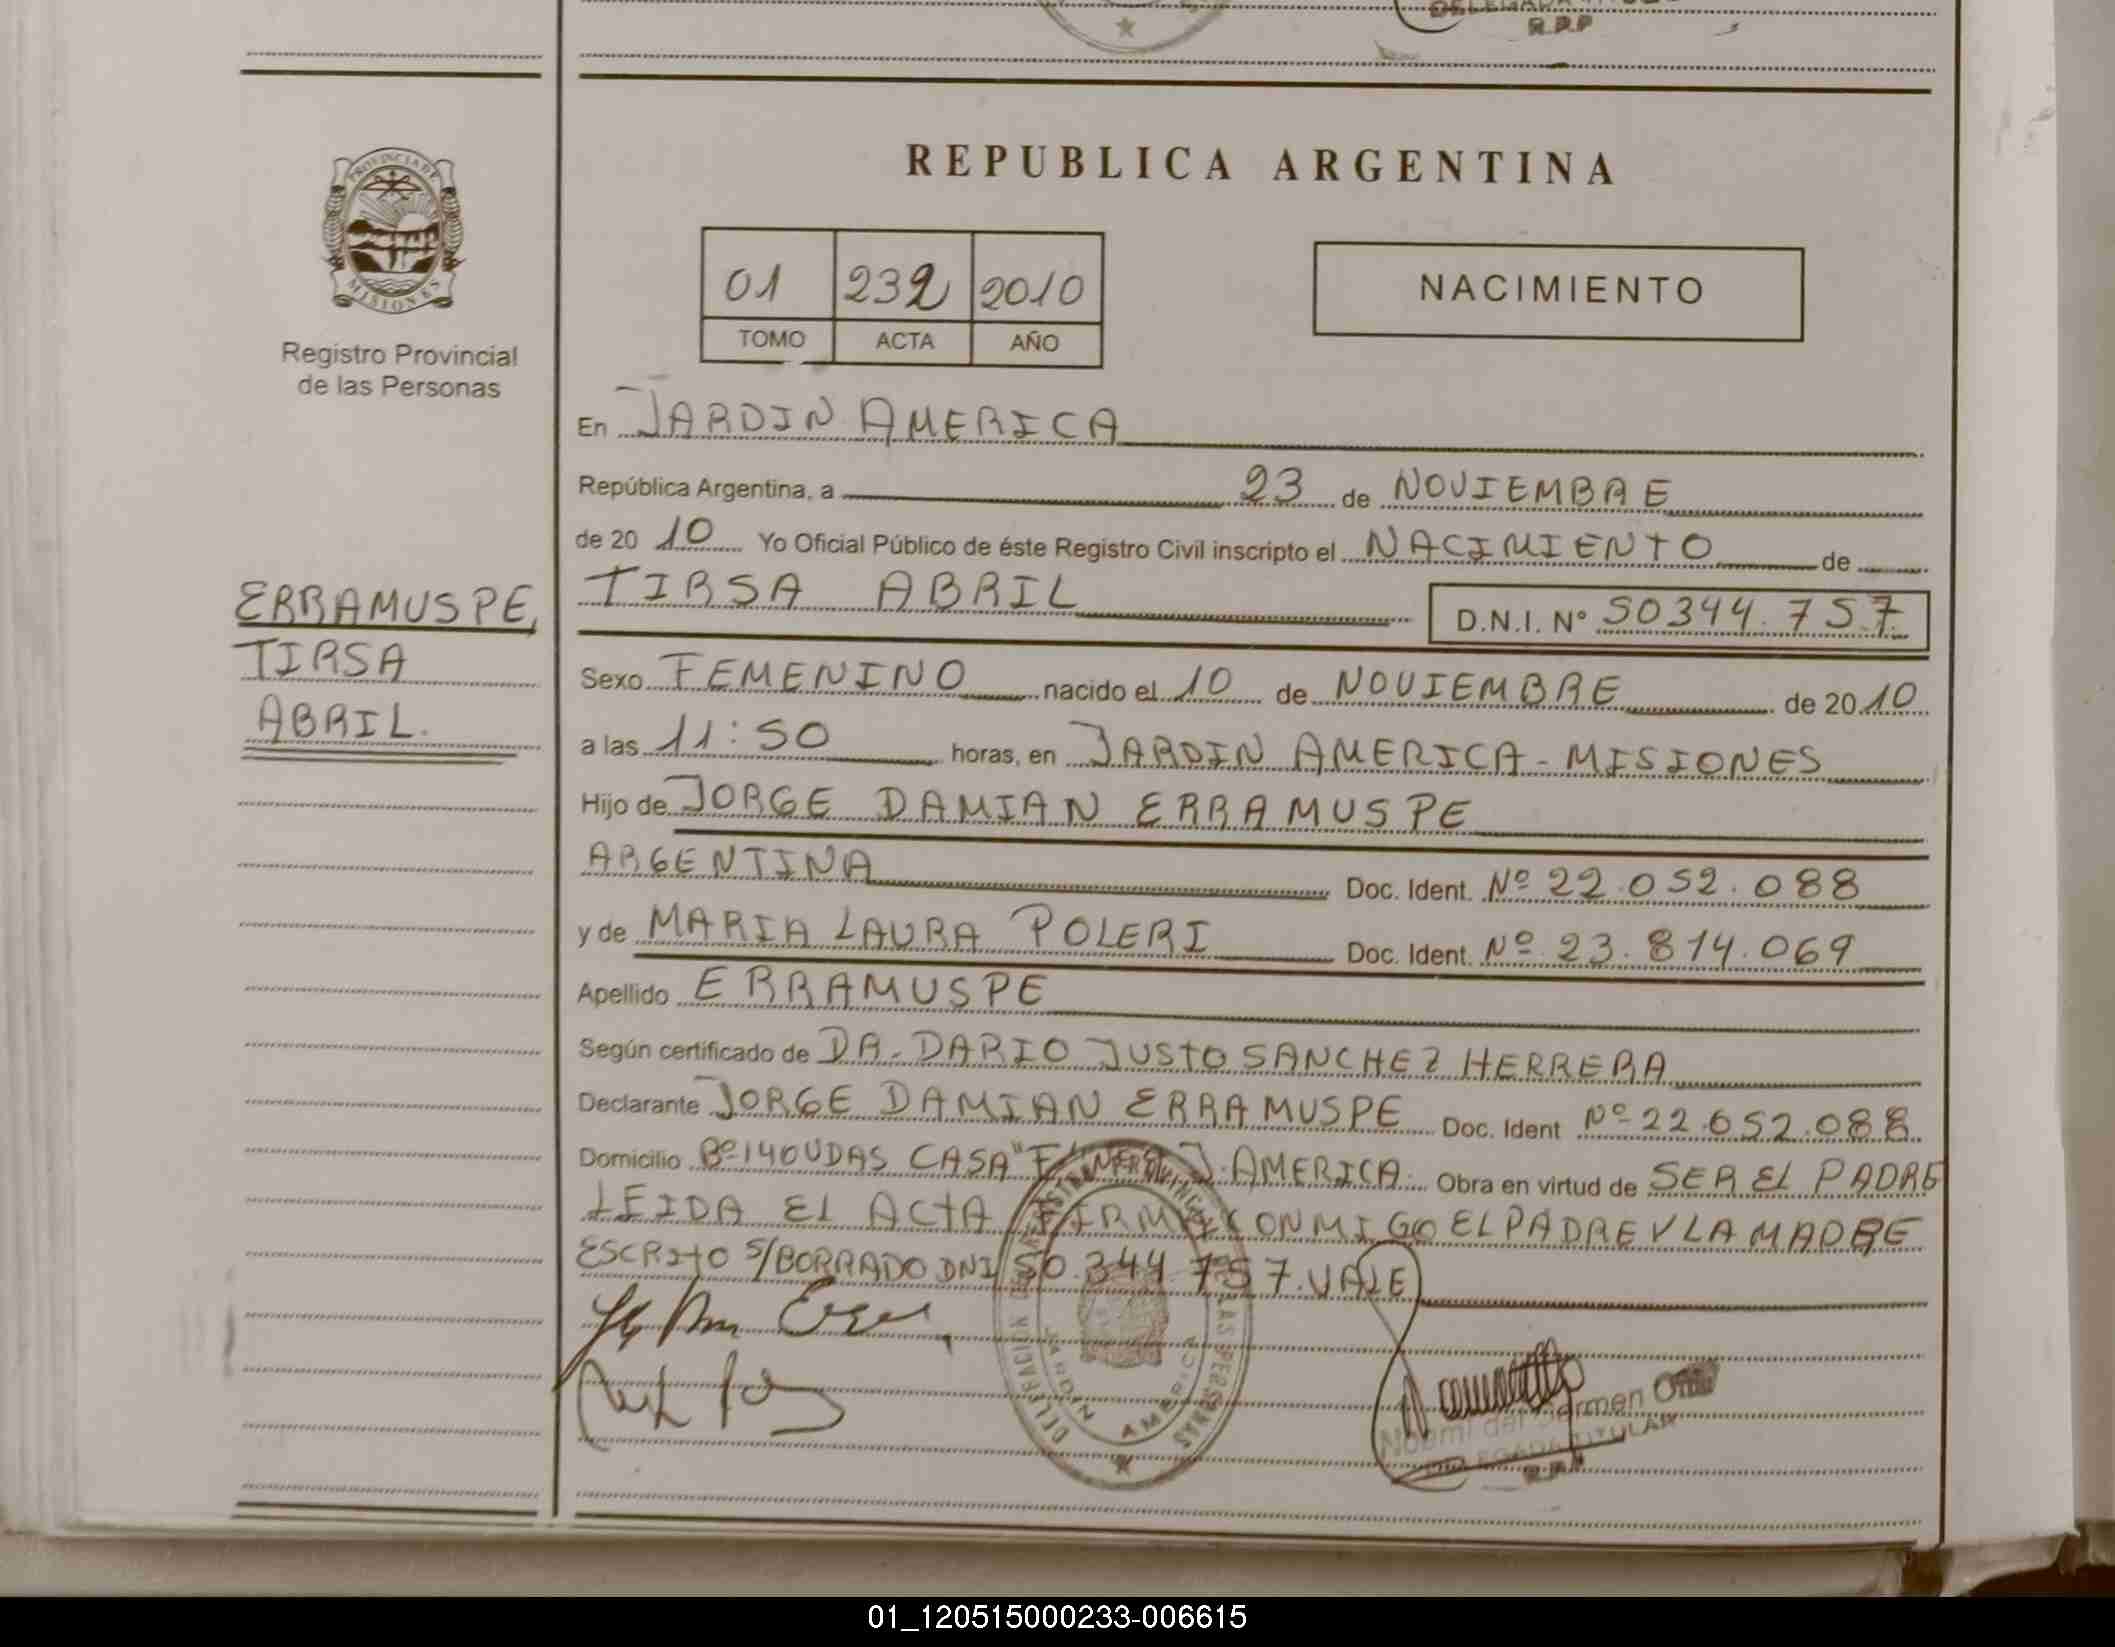 R.P.P
PROVINCIA DE
MISIONES
Registro Provincial
de las Personas
ERRAMUSPE,
TIRSA
ABRIL.
REPUBLICA ARGENTINA
01 232 2010
TOMO ACTA AÑO
NACIMIENTO
En JARDIN AMERICA
República Argentina, a 23 de NOVIEMBRE
de 20 10 Yo Oficial Público de éste Registro Civil inscripto el NACIMIENTO de
TIRSA ABRIL D.N.I. Nº 50344.757
Sexo FEMENINO nacido el 10 de NOVIEMBRE de 20 10
a las 11:50 horas, en JARDIN AMERICA - MISIONES
Hijo de JORGE DAMIAN ERRAMUSPE
ARGENTINA Doc. Ident. Nº 22.052.088
y de MARIA LAURA POLERI Doc. Ident. Nº 23.814.069
Apellido ERRAMUSPE
Según certificado de DR. DARIO JUSTO SANCHEZ HERRERA
Declarante JORGE DAMIAN ERRAMUSPE Doc. Ident Nº 22.052.088
Domicilio Bº 140 VDAS CASA J. AMERICA. Obra en virtud de SER EL PADRE
LEIDA EL ACTA FIRMA CONMIGO EL PADRE Y LA MADRE
ESCRITO S/BORRADO DNI 50.344.757. VALE
JARDIN AMERICA
LAS PERSONAS
Noemi del Carmen
TITULAR
R.P.P
01_120515000233-006615